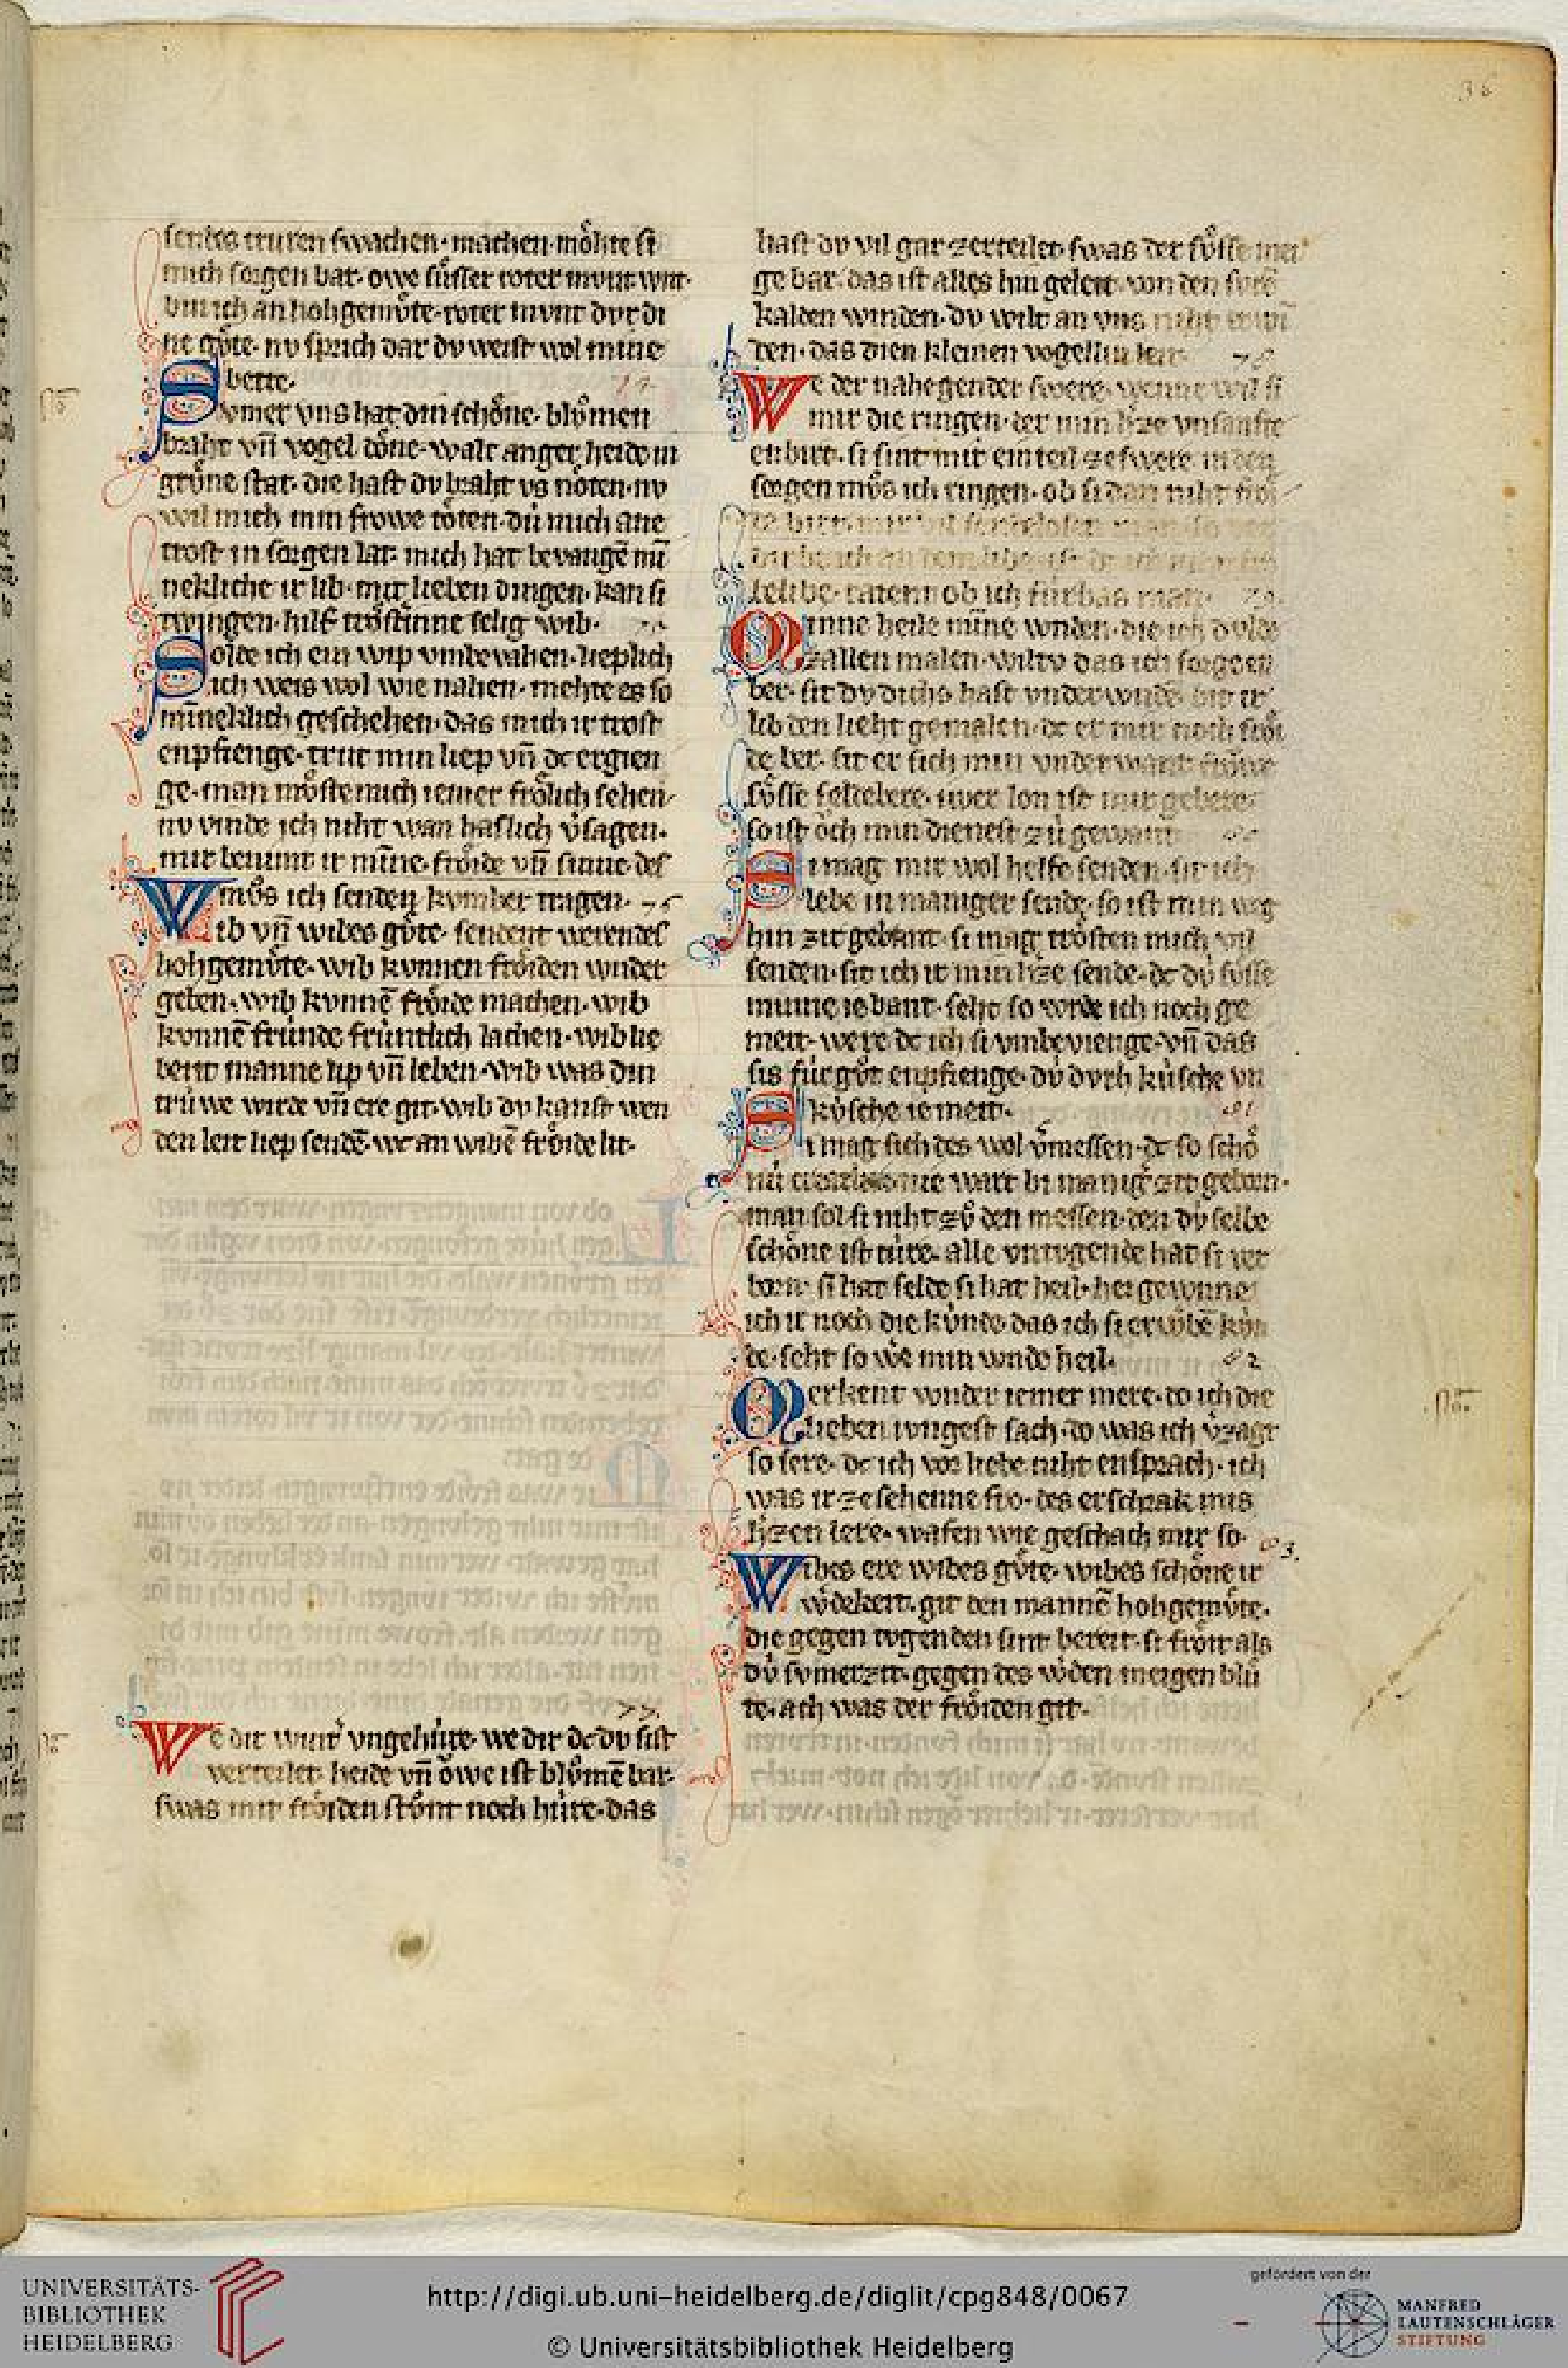 36
sendes truren swachen · machen · möhte si
mich sorgen bar · owe süsser roter munt wnt ·
bin ich an hohgemůte · roter mvnt dvr di
ne gůte · nv sprich dar dv weist wol mine
bette ·
Svmer vns hat din schône · blůmen
braht vñ vogel dône · walt anger heide in
grûne stat · die hast dv braht vs nôten · nv
wil mich min frowe tôten · dú mich ane
trost in sorgen lat · mich hat bevangē mī
nekliche ir lib · mit lieben dingen · kan si
twingen · hilf trôsterinne selig wib ·
Solde ich ein wip vmbevahen · lieplich
ich weis wol wie nahen · mehte es so
mīneklich geschehen · das mich ir trost
enpfienge · trut min liep vñ dc ergien
ge · man mûste mich iemer frôlich sehen ·
nv vinde ich niht wan haslich v̓sagen ·
mir benimt ir mīne · frôide vñ sinne · des
můs ich senden kvmber tragen · 76
Wib vñ wibes gůte · sendent werendes
hohgemůte · wib kvnnen frôiden wnder
geben · wib kvnnē frôide machen · wib
kvnnē frúnde frúntlich lachen · wib lie
bent manne lip vñ leben · wib was din
trúwe wirde vñ ere git · wib dv kanst wen
den leit liep sendē · wc an wibē frôide lit ·
77.
We dir wint̓ vngehúre · we dir dc dv sist
verteilet · heide vñ ôwe ist blůmē bar ·
swas mir frôiden stônt noch húre · das
hast dv vil gar zerteilet · swas der sûsse mei
ge bar · das ist alles hin geleit · von den
kalden winden · dv wilt an vns niht
den · das dien kleinen vogellin leit · 78
We der nahe gender swere · wenne wil si
mir die ringen · der min h̓ze vnsanfte
enbirt · si sint mir ein teil ze swere · in den
sorgen můs ich ringen · ob si dan niht frôi
selibe · ratent ob ich fúrbas
Minne heile mine wnden · die ich dvlde
zallen malen · wiltv das ich sorge en
ber · sit dv dichs hast vnderwnden · bit ir
lib den lieht gemalen · dc er mir noch frôi
de ber · sit er sich min vnderwant frôwe
sûsse seldebere · iwer lon ist mir gebere
so ist ôch min dienest zů gewant 80
Si mag mir wol helfe senden · sit ich
lebe in maniger sende · so ist min weg
hin zir gebant · si mag trôsten mich vil
senden · sit ich ir min h̓ze sende · dc dú sûsse
minne ie bant · seht so wrde ich noch ge
meit · were dc ich si vmbevienge · vñ das
sis fúr gůt enpfienge · dú dvrh kúsche vn
kúsche ie meit · 81
Si mag sich des wol v̓messen · dc so schô
nú creatiure nie wart bi manig̓ zit geborn ·
man sol si niht zů den messen · den dú selbe
schône ist túre · alle vntvgende hat si ver
born · si hat selde si hat heil · hei gewnne
ich ir noch die kúnde das ich si erw̓bē kún
de · seht so we min wnde heil · 82
Merkent wnder iemer mere · do ich die
lieben ivngest sach · do was ich v̓zagt
so sere · dc ich vor liebe niht ensprach · ich
was ir ze sehenne fro · des erschrak mis
h̓zen lere · wafen wie geschach mir so · 83.
Wibes ere wibes gůte · wibes schône ir
w̓dekeit · git den mannē hohgemůte ·
die gegen tvgenden sint bereit · si frôit als
dú svmerzit · gegen des w̓den meigen blů
te · ach was der frôiden git ·
UNIVERSITÄTS-
BIBLIOTHEK
HEIDELBERG
http://digi.ub.uni-heidelberg.de/diglit/cpg848/0067
© Universitätsbibliothek Heidelberg
gefördert von der
MANFRED
LAUTENSCHLÄGER
STIFTUNG